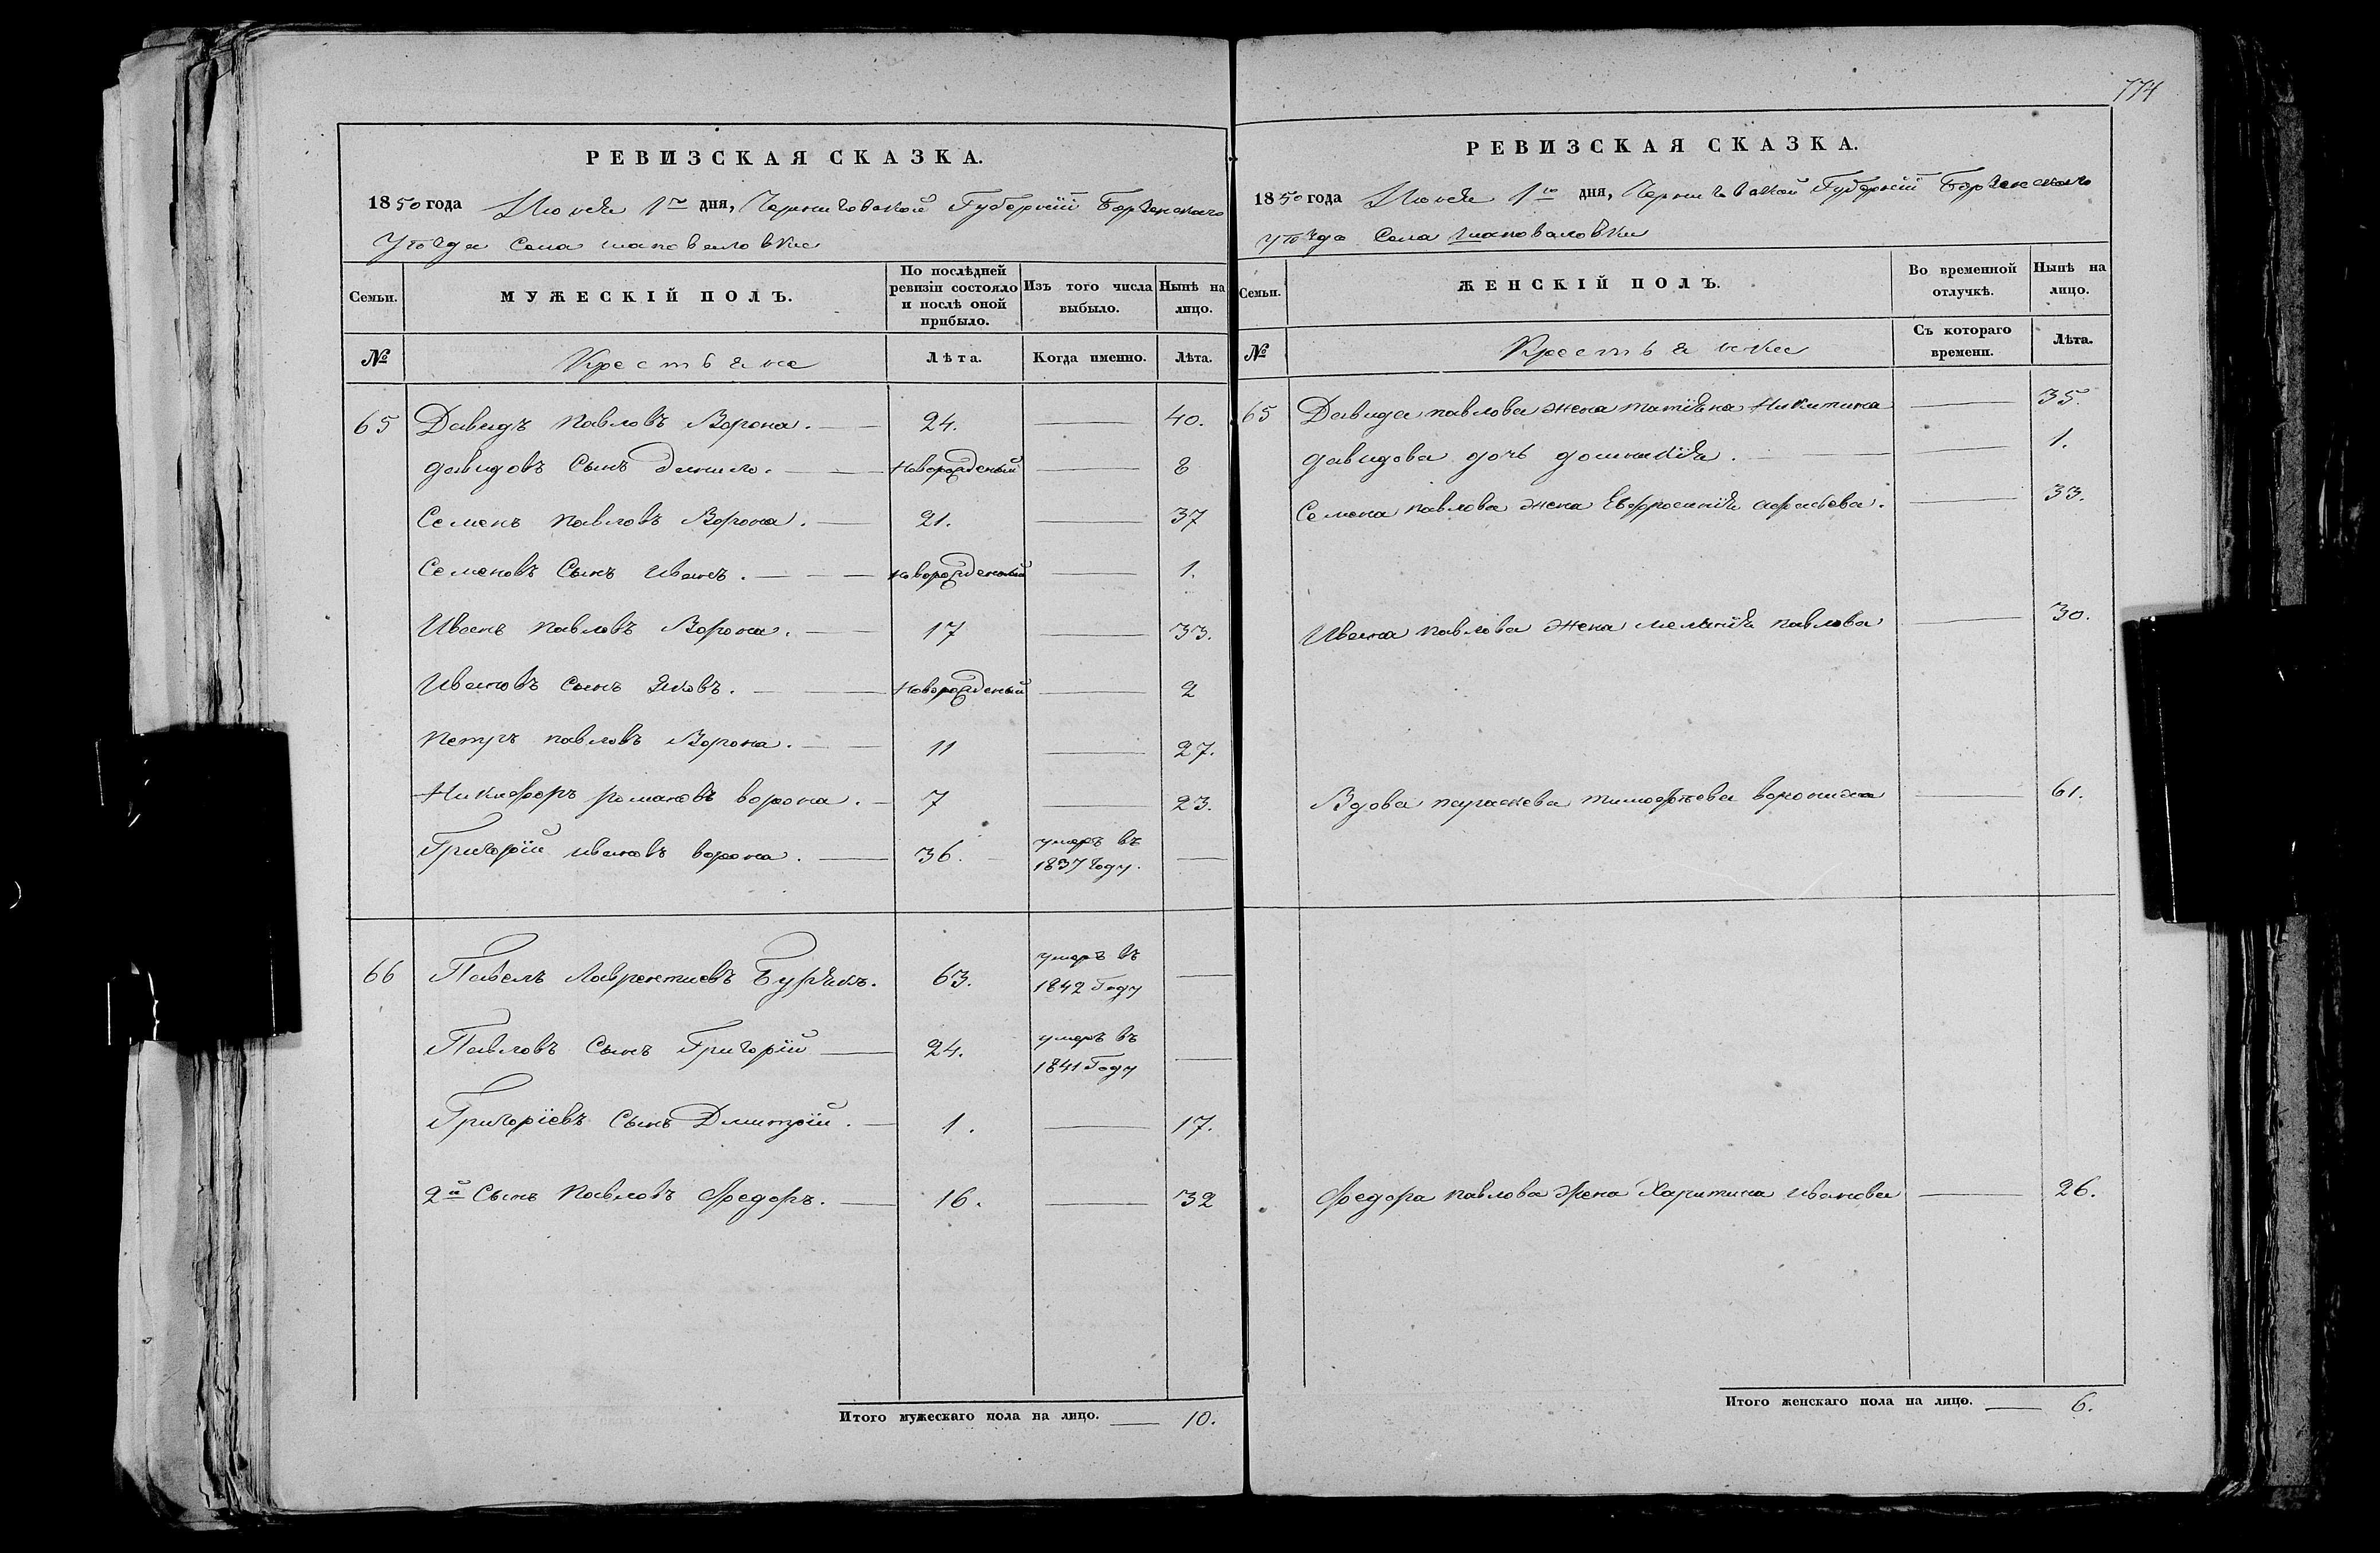 774
РЕВИЗСКАЯ СКАЗКА.
1850 года Июня 1го дня, Черниговской Губерніи Борзенскаго
Уѣзда Села шаповаловки
Семьи.
МУЖЕСКІЙ ПОЛЪ.
По послѣдней
ревизіи состояло
и послѣ оной
прибыло.
Изъ того числа
выбыло.
Нынѣ на
лицо.
№
Крестьяне
Лѣта.
Когда именно.
Лѣта.
65 Давидъ Павловъ Ворона. — 24. — 40.
давидовъ Сынъ данило. — Новорожденый — 8
Семенъ Павловъ Ворона. — 21. — 37
Семеновъ Сынъ Иванъ. — новорожденый — 1.
Иванъ Павловъ Ворона. — 17 — 33.
Ивановъ Сынъ Яковъ. — Новорожденый — 2
Петръ павловъ Ворона. — 11 — 27.
Никифоръ романовъ ворона. — 7 — 23.
Григорій ивановъ ворона. — 36. умеръ въ
1837 году. —
66 Павелъ Лаврентиевъ Бурякъ. 63. умеръ въ
1842 Году —
Павловъ Сынъ Григорій — 24. умеръ въ
1841 Году —
Григоріевъ Сынъ Дмитрій. — 1. — 17.
2й Сынъ Павловъ Федоръ. — 16. — 32
Итого мужескаго пола на лицо. — 10.
РЕВИЗСКАЯ СКАЗКА.
1850 года Июня 1го дня, Черниговской Губерніи Борзенскаго
уѣзда Села шаповаловки
Семьи.
ЖЕНСКІЙ ПОЛЪ.
Во временной
отлучкѣ.
Нынѣ на
лицо.
№
Крестьянки
Съ котораго
времени.
Лѣта.
65 Давида павлова жена татіяна Никитина — 35.
давидова дочь домникія. — 1.
Семена павлова жена Ефросинія — 33.
Ивана павлова жена меланія павлова — 30.
Вдова параскева тимофѣеваворониха — 61.
Федора павлова жена Харитина иванова — 26.
Итого женскаго пола на лицо. — 6.